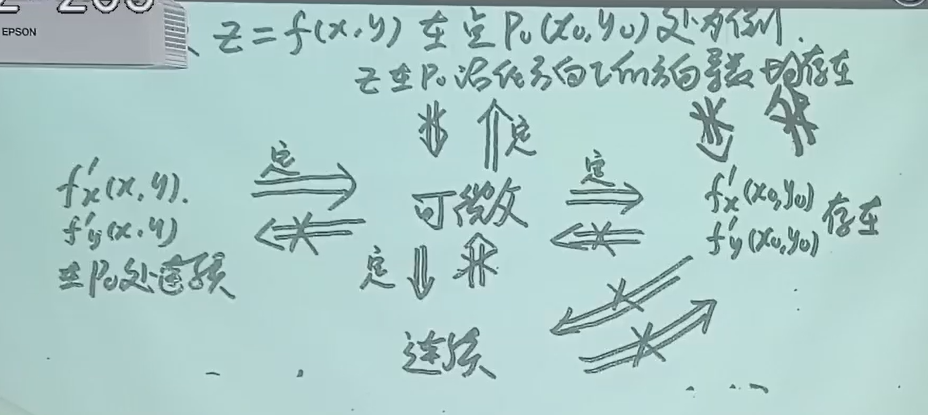 EPSON
z=f(x,y) 在点P₀(x₀,y₀)处为例.
z在P₀沿任方向l的方向导数均存在
定
定 定
f'x(x,y).
f'y(x,y)
在P₀处连续
可微
f'x(x₀,y₀)
f'y(x₀,y₀) 存在
定
连续